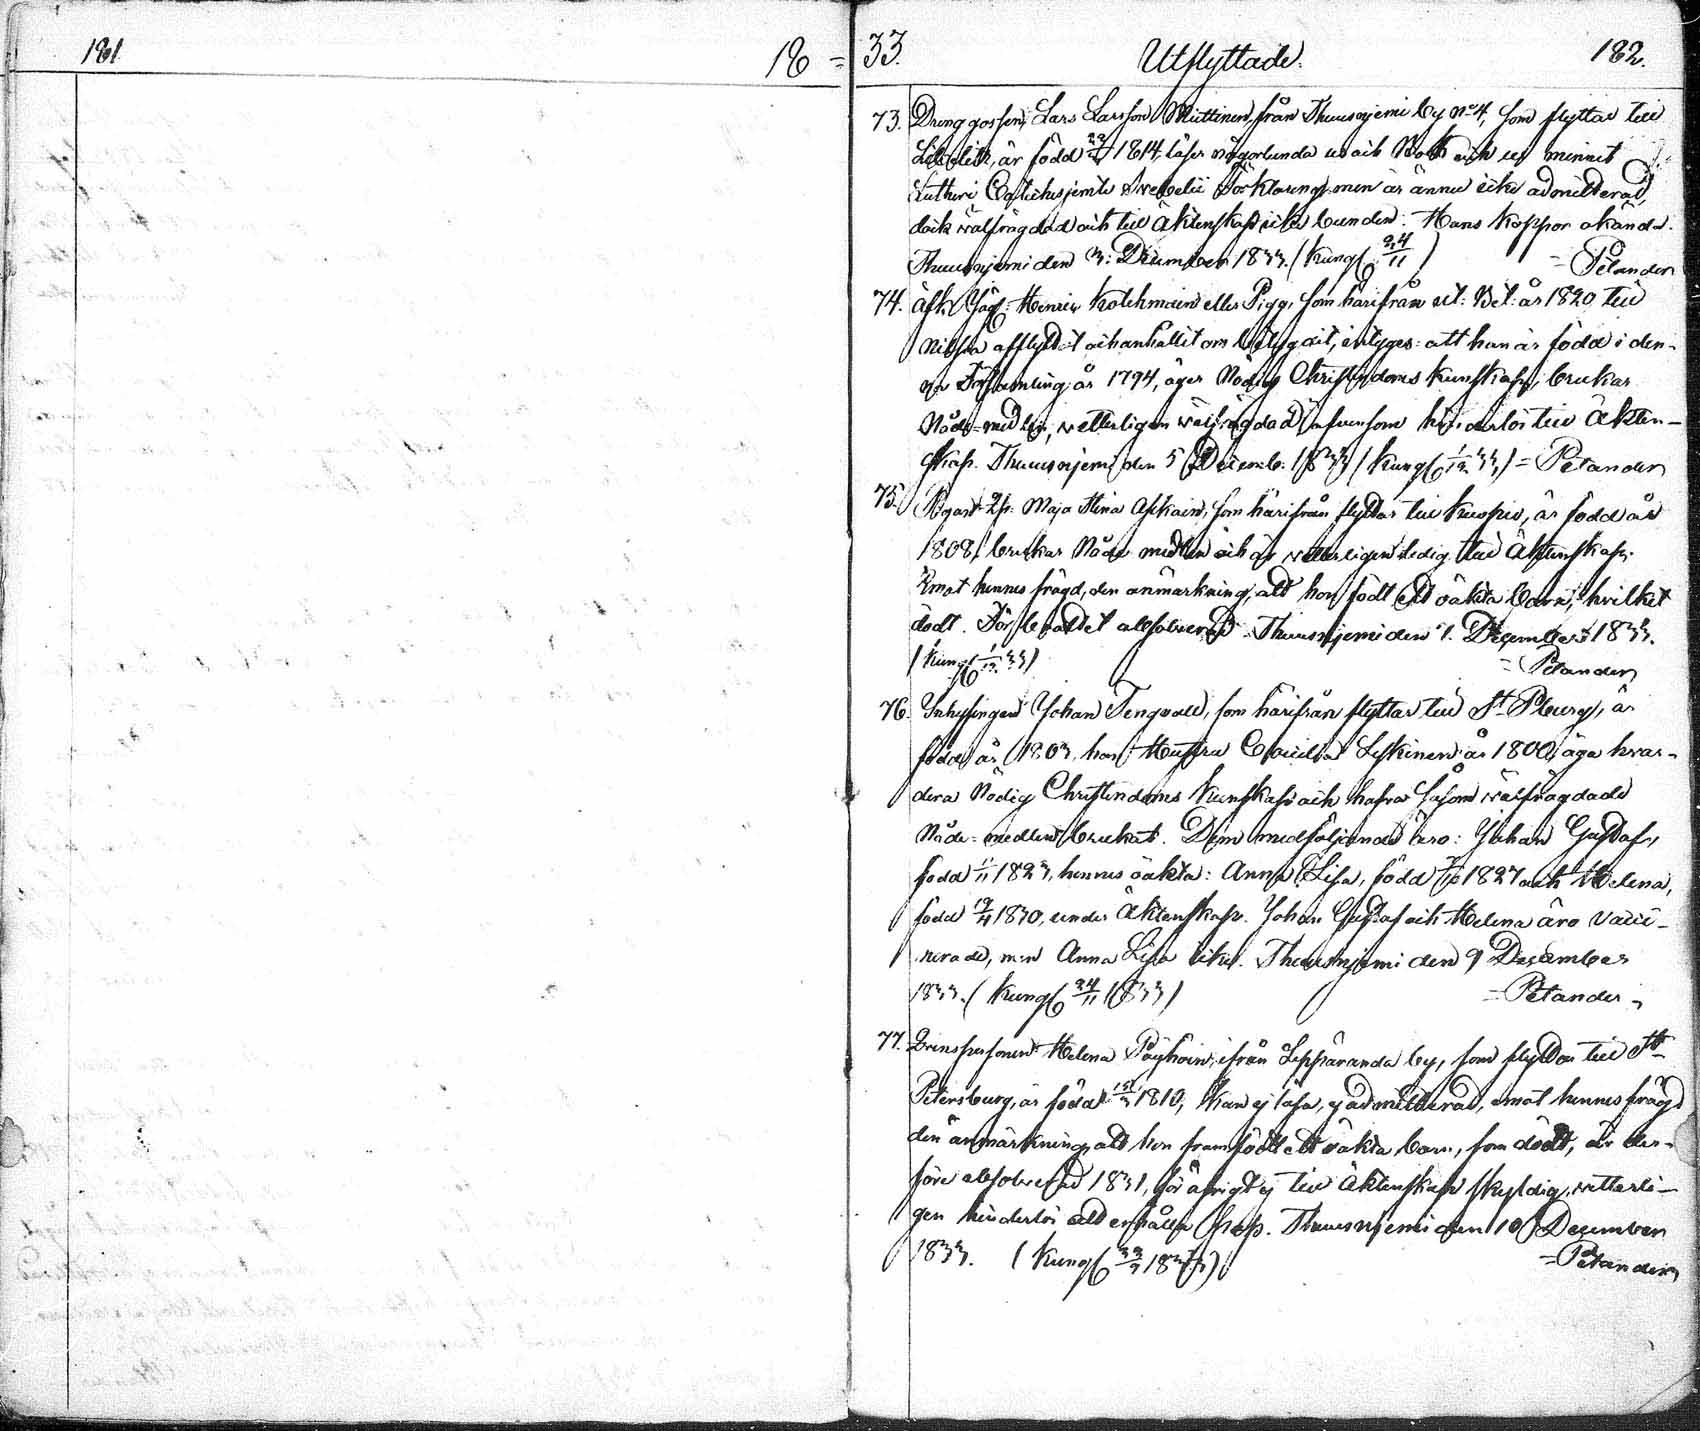 181
18 =
33.
Utflyttade.
182.
73. Drenggossen, Lars Larsson Miettinen, från Thuusnjemi by No 4, som flyttar till
Libelitz, är född 1814, läser någorlunda ur och Bok och ur minnet
Lutheri Cateches jemte Svebelii Förklaring, men är ännu icke admitterad,
dock välfrägdad och till Äktenskap icke bunden. Hans Koppor okända.
Thuusnjemi den 3: December 1833. (Kung 24/11) = Pelander
74. Afsk. Henric Kolehmain eller Pigg, som härifrån ut: Bet: år 1820 till
Nilsiä afflyttat och anhållit om betyg dit, intyges: att han är född i den-
na Församling år 1794, äger Nödig Christendoms kunskap, brukar
Nåde-medlen, vetterligen välfrägdad äfvensom hinderlös till Äkten-
skap. Thuusnjemi den 5 Decemb. 1833 (Kung 1/12 33) = Pelander
75. Maja Stina Asikain, som härifrån flyttar till Kuopio, är född år
1808, brukar Nåde medlen och är vetterligen ledig till Äktenskap.
Emot hennes frägd, den anmärkning, att hon födt ett oäkta barn, hvilket
dödt. För brottet absolverad. Thuusnjemi den 7. December 1833.
(Kung 1/12 33) = Pelander
76. Inhysingen Johan Tengvall, som härifrån flyttar till St. Pburg, är
född år 1803, hans Hustru Cecilia Leskinen år 1800, äga hvar-
dera Nödig Christendoms kunskap och hafva såsom välfrägdade
Nåde-medlen brukat. Dem medföljande äro: Johan Gustaf,
född 1823, hennes oäkta: Anna Lisa, född 1827 och Helena,
född 19/4 1830, under Äktenskap. Johan Gustaf och Helena äro vacci-
nerade, men Anna Lisa icke. Thuusnjemi den 9 December
1833. (Kung 24/11 1833) = Pelander
77. Qvinspersonen Helena Pöyhöin, ifrån Leppäranda by, som flyttar till St.
Petersburg, är född 1810, kan ej läsa, ej admitterad, emot hennes frägd
den anmärkning, att hon framfödt ett oäkta barn, som dödt, är der-
före absolverad 1831, för öfrigt ej till Äktenskap skyldig, vetterli-
gen hinderlös att erhålla Pass. Thuusnjemi den 10 December
1833. (Kung 1833) = Pelander